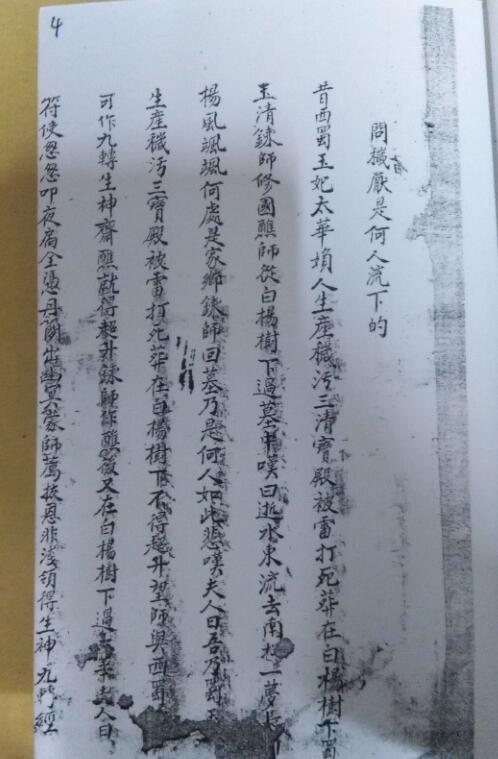 4
問穢厭是何人流下的
昔西蜀王妃太華夫人生產穢污三清寶殿被雷打死葬在白楊樹下蜀
玉清鍊師修國醮師從白楊樹下過墓中嘆曰逝水東流去南柯一夢長
楊風颯颯何處是家鄉鍊師曰墓乃是何人如此悲嘆夫人曰吾乃蜀
生產穢污三寶殿被雷打死葬在白楊樹下不得超升望師與西蜀
可作九轉生神齋醮就得超升鍊師作醮後又在白楊樹下過夫人曰
符使忽忽叩夜扃全憑丹開出幽冥蒙師薦拔恩非淺領得生神九轉經